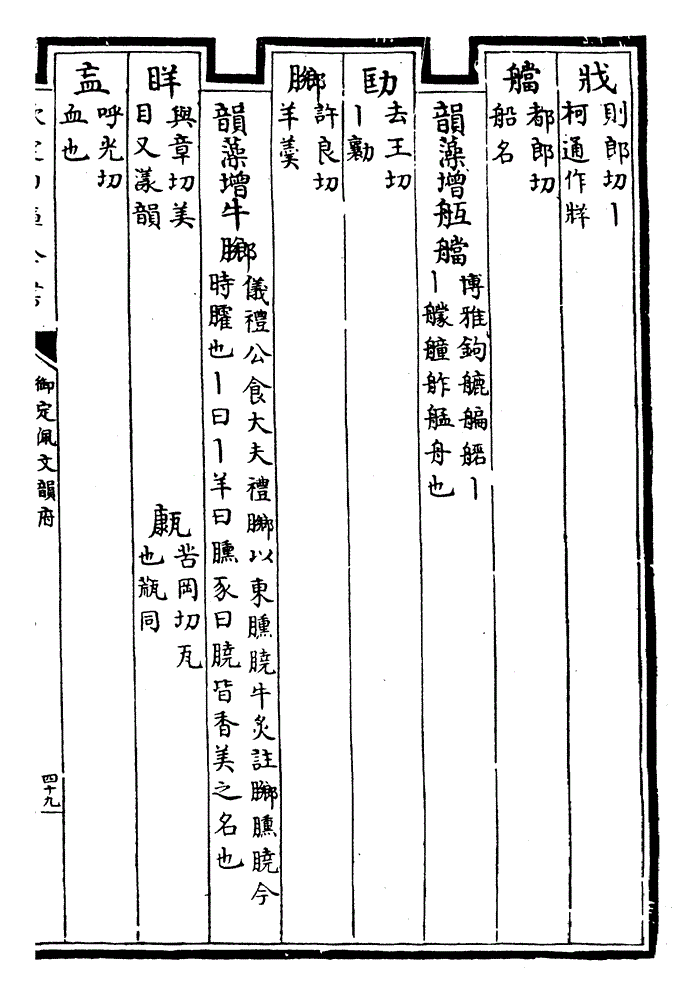 戕 則郎切丨
柯通作牂
艡 都郎切
船名
韻藻增 舡艡 博雅鉤艫艑艍丨
丨艨艟舴艋舟也
劻 去王切
丨勷
膷 許良切
羊羹
韻藻增 牛膷 儀禮公食大夫禮膷以東臐膮牛炙註膷臐膮今
時臛也丨曰丨羊曰臐豕曰膮皆香美之名也
眻 與章切美
目又漾韻
㼹 苦岡切瓦
也瓶同
衁 呼光切
血也
御定佩文韻府
四十九